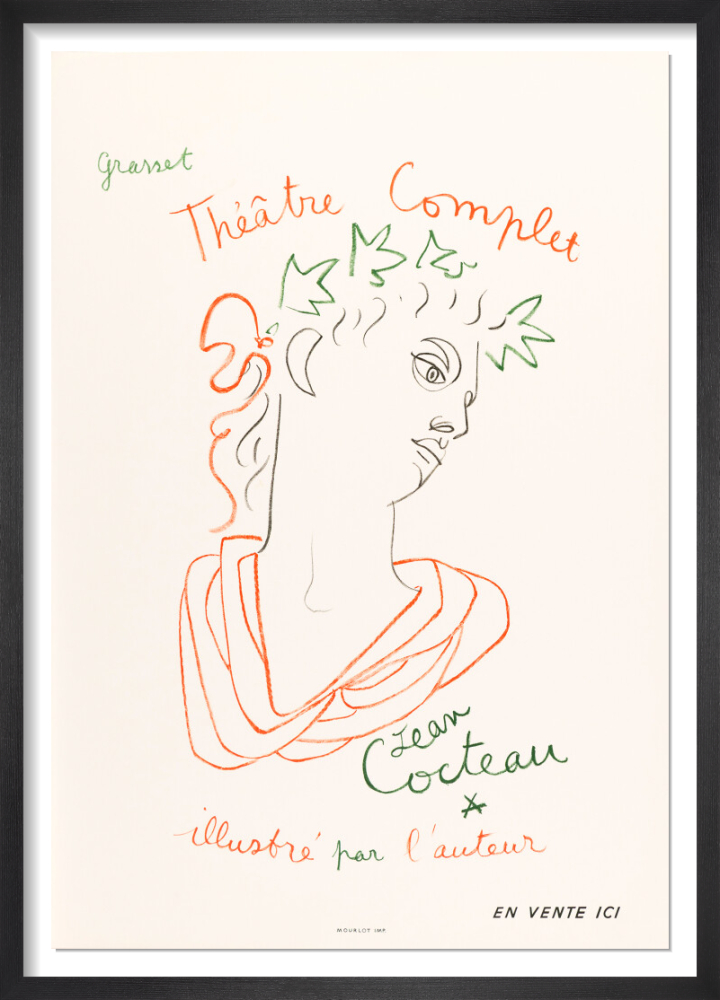 Grasset
Théâtre Complet
Jean
Cocteau
illustré par l'auteur
EN VENTE ICI
MOURLOT IMP.